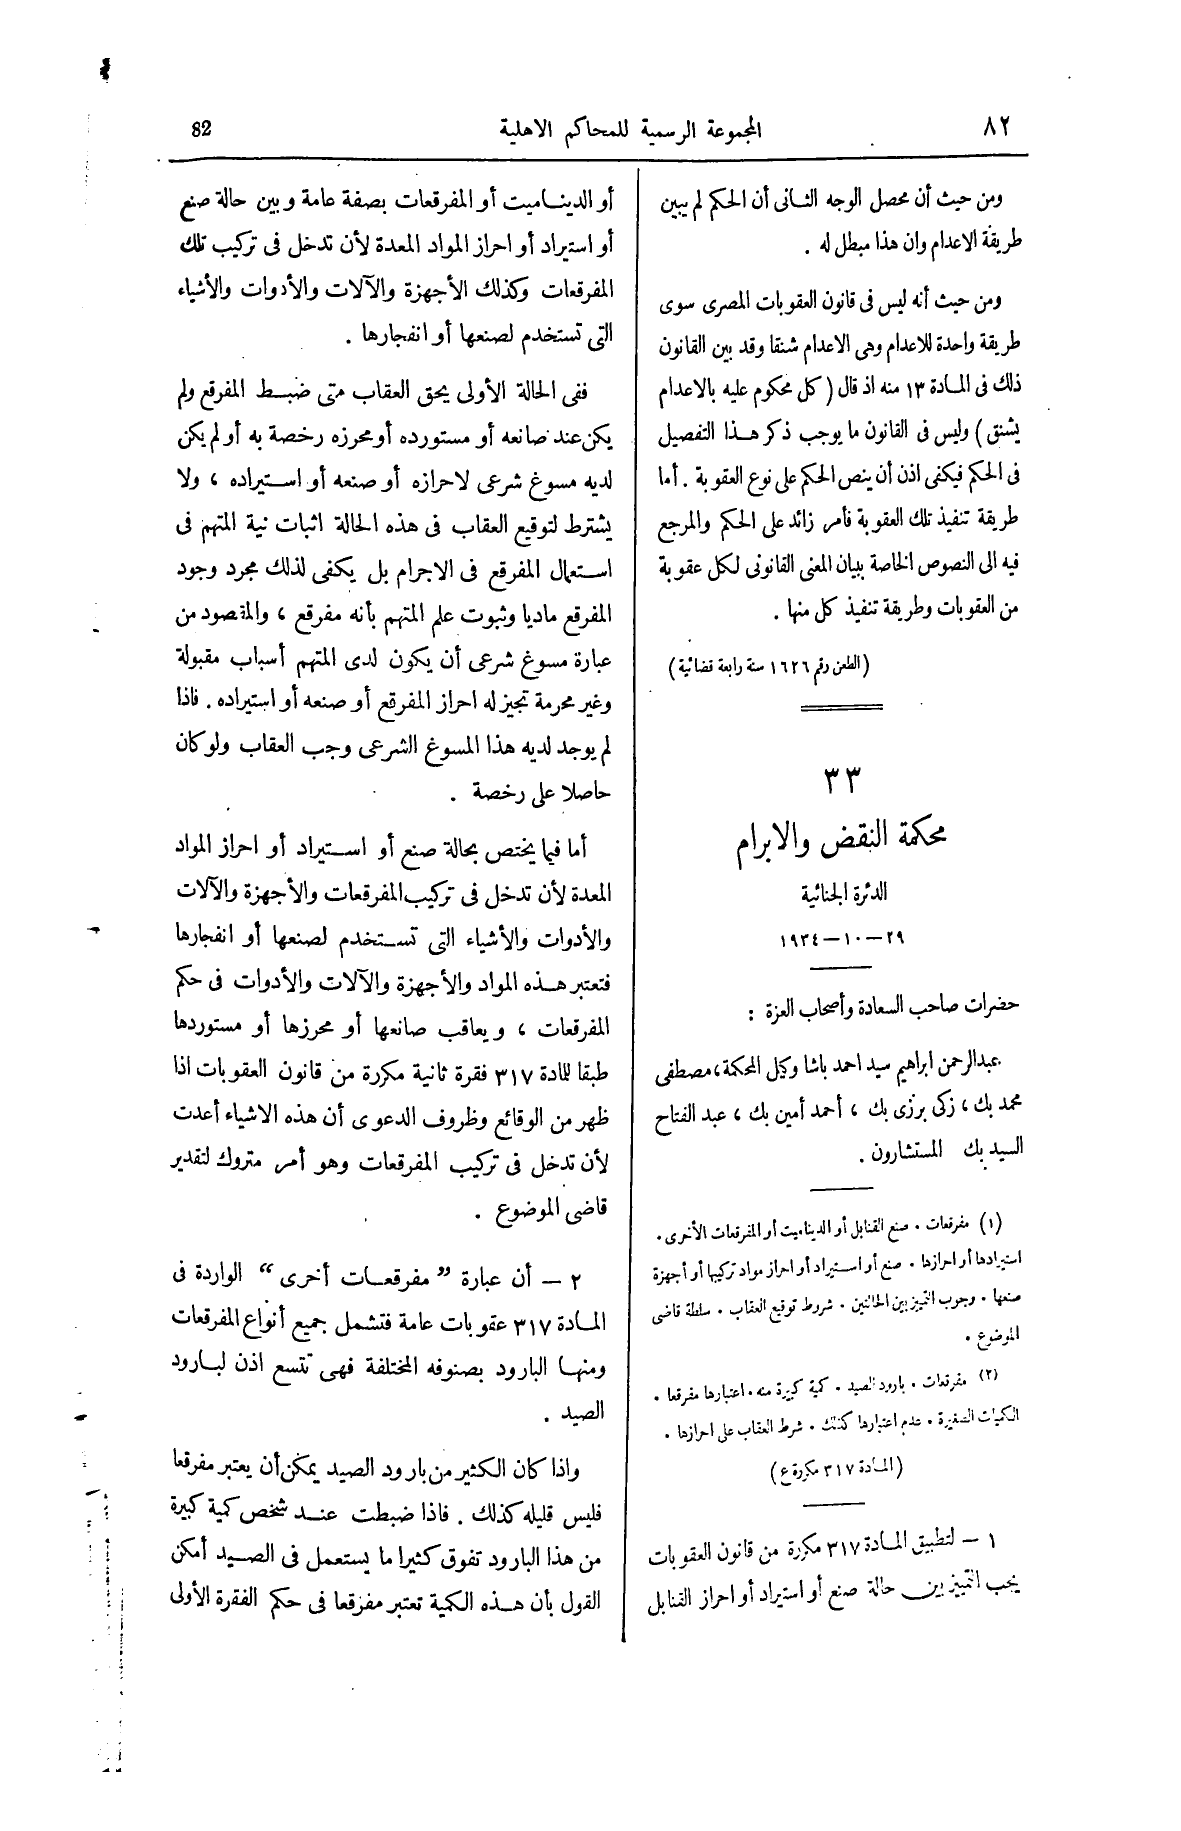 ٨٢
المجموعة الرسمية للمحاكم الاهلية
82
ومن حيث أن محصل الوجه الثانى أن الحكم لم يبين
طريقة الاعدام وان هذا مبطل له .
ومن حيث أنه ليس فى قانون العقوبات المصرى سوى
طريقة واحدة للاعدام وهى الاعدام شنقا وقد بين القانون
ذلك فى المادة ١٣ منه اذ قال ( كل محكوم عليه بالاعدام
يشنق ) وليس فى القانون ما يوجب ذكر هذا التفصيل
فى الحكم فيكفى اذن أن ينص الحكم على نوع العقوبة . أما
طريقة تنفيذ تلك العقوبة فأمر زائد على الحكم والمرجع
فيه الى النصوص الخاصة ببيان المعنى القانونى لكل عقوبة
من العقوبات وطريقة تنفيذ كل منها .
(الطعن رقم ١٦٢٦ سنة رابعة قضائية)
٣٣
محكمة النقض والابرام
الدئرة الجنائية
٢٩ – ١٠ – ١٩٣٤
حضرات صاحب السعادة وأصحاب العزة :
عبدالرحمن ابراهيم سيد احمد باشا وكيل المحكمة، مصطفى
محمد بك ، زكى برزى بك ، أحمد أمين بك ، عبد الفتاح
السيد بك المستشارون .
(١) مفرقعات . صنع القنابل أو الديناميت أو المفرقعات الأخرى .
استيرادها أو احرازها . صنع أو استيراد أو احراز مواد تركيبها أو أجهزة
صنعها . وجوب التمييز بين الحالتين . شروط توقيع العقاب . سلطة قاضى
الموضوع .
(٢) مفرقعات . بارود الصيد . كمية كبيرة منه . اعتبارها مفرقعا .
الكميات الصغيرة . عدم اعتبارها كذلك . شرط العقاب على احرازها .
(المادة ٣١٧ مكررة ع)
١ – لتطبيق المادة ٣١٧ مكررة من قانون العقوبات
يجب التمييز بين حالة صنع أو استيراد أو احراز القنابل
أو الديناميت أو المفرقعات بصفة عامة وبين حالة صنع
أو استيراد أو احراز المواد المعدة لأن تدخل فى تركيب تلك
المفرقعات وكذلك الأجهزة والآلات والأدوات والأشياء
التى تستخدم لصنعها أو انفجارها .
ففى الحالة الأولى يحق العقاب متى ضبط المفرقع ولم
يكن عند صانعه أو مستورده أو محرزه رخصة به أو لم يكن
لديه مسوغ شرعى لاحرازه أو صنعه أو استيراده ، ولا
يشترط لتوقيع العقاب فى هذه الحالة اثبات نية المتهم فى
استعمال المفرقع فى الاجرام بل يكفى لذلك مجرد وجود
المفرقع ماديا وثبوت علم المتهم بأنه مفرقع ، والمقصود من
عبارة مسوغ شرعى أن يكون لدى المتهم أسباب مقبولة
وغير محرمة تجيز له احراز المفرقع أو صنعه أو استيراده . فاذا
لم يوجد لديه هذا المسوغ الشرعى وجب العقاب ولو كان
حاصلا على رخصة .
أما فيما يختص بحالة صنع أو استيراد أو احراز المواد
المعدة لأن تدخل فى تركيب المفرقعات والأجهزة والآلات
والأدوات والأشياء التى تستخدم لصنعها أو انفجارها
فتعتبر هذه المواد والأجهزة والآلات والأدوات فى حكم
المفرقعات ، ويعاقب صانعها أو محرزها أو مستوردها
طبقا للمادة ٣١٧ فقرة ثانية مكررة من قانون العقوبات اذا
ظهر من الوقائع وظروف الدعوى أن هذه الاشياء أعدت
لأن تدخل فى تركيب المفرقعات وهو أمر متروك لتقدير
قاضى الموضوع .
٢ – أن عبارة ”مفرقعات أخرى“ الواردة فى
المادة ٣١٧ عقوبات عامة فتشمل جميع أنواع المفرقعات
ومنها البارود بصنوفه المختلفة فهى تتسع اذن لبارود
الصيد .
واذا كان الكثير من بارود الصيد يمكن أن يعتبر مفرقعا
فليس قليله كذلك . فاذا ضبطت عند شخص كمية كبيرة
من هذا البارود تفوق كثيرا ما يستعمل فى الصيد أمكن
القول بأن هذه الكمية تعتبر مفرقعا فى حكم الفقرة الأولى